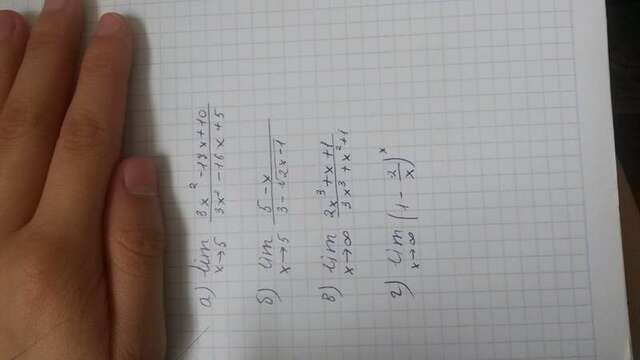 а) lim x→5 (3x² - 18x + 10)/(3x² - 16x + 5)
б) lim x→5 (5 - x)/(3 - √(2x - 1))
в) lim x→∞ (2x³ + x + 1)/(3x³ + x² + 1)
г) lim x→∞ (1 - 2/x)ˣ